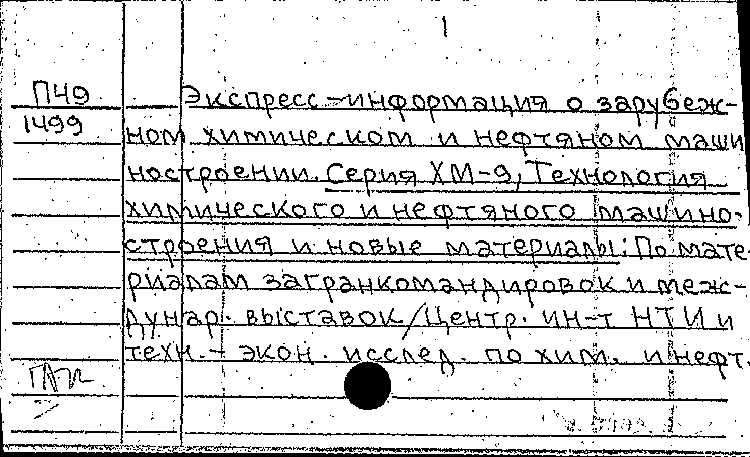 1
П49 Экспресс-информация о зарубеж-
1499 ном химическом и нефтяном маши
ностроении. Серия ХМ-9, Технология
химического и нефтяного машино-
строения и новые материалы: По мате-
риалам загранкомандировок и меж-
дунар. выставок/Центр. ин-т НТИ и
техн.-экон. исслед. по хим. и нефт.